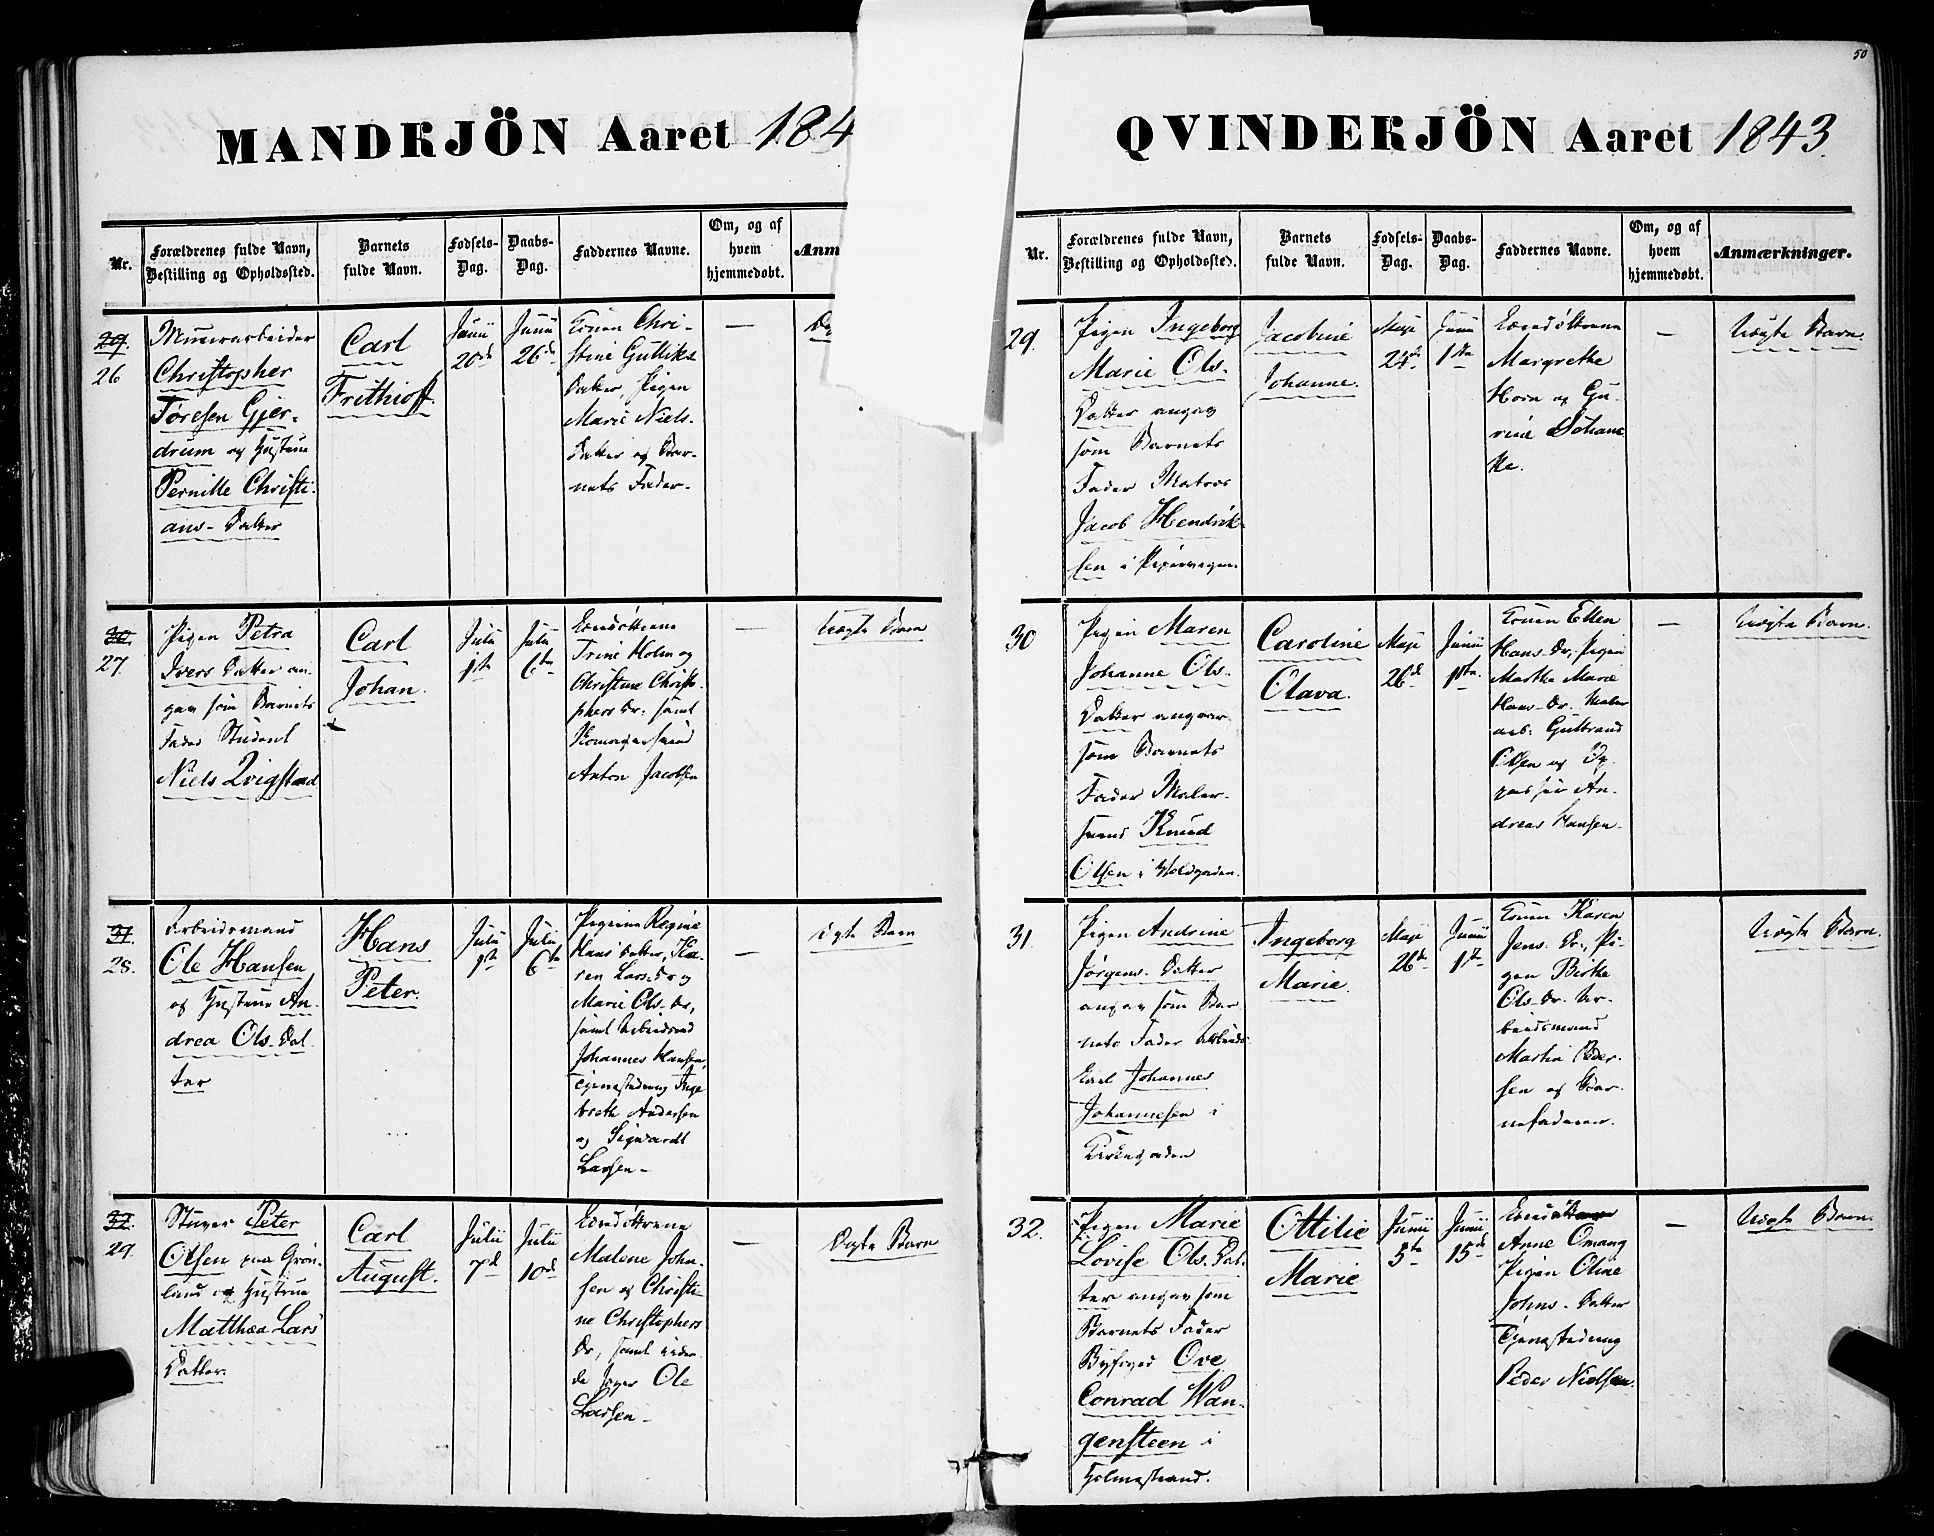 50
MANDKJÖN Aaret 184
Nr.
Forældrenes fulde Navn,
Bestilling og Opholdssted.
Barnets
fulde Navn.
Fødsels-
Dag.
Daabs-
Dag.
Faddernes Navne.
Om, og af
hvem
hjemmedøbt.
Anm
29.
26
Muurarbeider
Christopher
Toresen Gjer-
drum og Hustrue
Pernille Christi-
ans-Datter
Carl
Frithioff.
Junii
20de
Junii
26de
Konen Chri-
stine Gulliks
Datter, Pigen
Marie Niels-
Datter og Bar-
nets Fader.
—
30
27.
Pigen Petra
Ivers Datter an-
gav som Barnets
Fader Student
Niels Qvigstad
Carl
Johan.
Julii
1ste
Julii
6te
Trine Holm og
Christine Christo-
phers Dr: samt
Anton Jacobsen
—
Uægte Barn
31.
28.
Arbeidsmand
Ole Hansen
og Hustrue An-
drea Ols-Dat-
ter
Hans
Peter.
Julii
1ste
Julii
6te
Pigerne Regine
Hans Datter, Ka-
ren Lars-Dr og
Marie Ols-Dr,
samt Arbeidsmd
Johannes Hansen,
Tjenestedreng Inge
breth Andersen
og Sigvardt
Larsen-
—
Ægte Barn
32.
29.
Peter
Olsen paa Grøn-
land og Hustrue
Matthea Lars
Datter.
Carl
August.
Julii
7de
Julii
10de
Malene John-
sen og Christi-
ne Christophers
Dr, samt
Ole
Larsen-
—
Ægte Barn
QVINDEKJÖN Aaret 1843.
Nr.
Forældrenes fulde Navn,
Bestilling og Opholdssted.
Barnets
fulde Navn.
Fødsels-
Dag.
Daabs-
Dag.
Faddernes Navne.
Om, og af
hvem
hjemmedøbt.
Anmærkninger.
29.
Pigen Ingeborg
Marie Ols-
Datter angav
som Barnets
Fader Matros
Jacob Hendrik-
sen i Pipervigen.
Jacobine
Johanne.
Maji
24de
Junii
1ste
Margrethe
Horn og Gu-
rine
—
Uægte Barn.
30
Pigen Maren
Johanne Ols-
Datter angav
som Barnets
Fader Maler-
svend Knud
Olsen i Voldgaden.
Caroline
Olava.
Maji
26de
Junii
1ste.
Konen Ellen
Hans-Dr, Pigen
Martha Marie
Hans-Dr. Maler
arb: Gulbrand
Olsen og
An-
dreas Hansen.
—
Uægte Barn.
31.
Pigen Andrine
Jørgens-Datter
angav som Bar
nets Fader
Johannes
Johannesen i
Ingeborg
Marie.
Maji
26de
Junii
1ste
Konen Karen
Jens-Dr., Pi-
gen Berthe
Ols-Dr. Ar-
beidsmand
Martin Peder-
sen og Bar-
nefaderen.
—
Uægte Barn.
32.
Pigen Marie
Lovise Ols-Dat-
ter angav som
Barnets Fader
Byfoged Ove
Conrad Wan-
gensteen i
Holmestrand.
Ottilie
Marie
Junii
5te
Junii
15de
Anne Omang
Pigen Oline
Johns-Datter
Tjenestedreng
Peder Nielsen.
—
Uægte Barn.